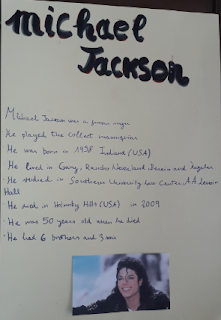 michael
Jackson
Michael Jackson was a famous singer
He played the
He was born in 1958 Indiana (USA)
He lived in Gary, Rancho Neverland, and
He studied in Southern University Los
Hall
He died in Holmby Hills (USA) in 2009
He was 50 years old when he died
He had 6 brothers and 3 sons